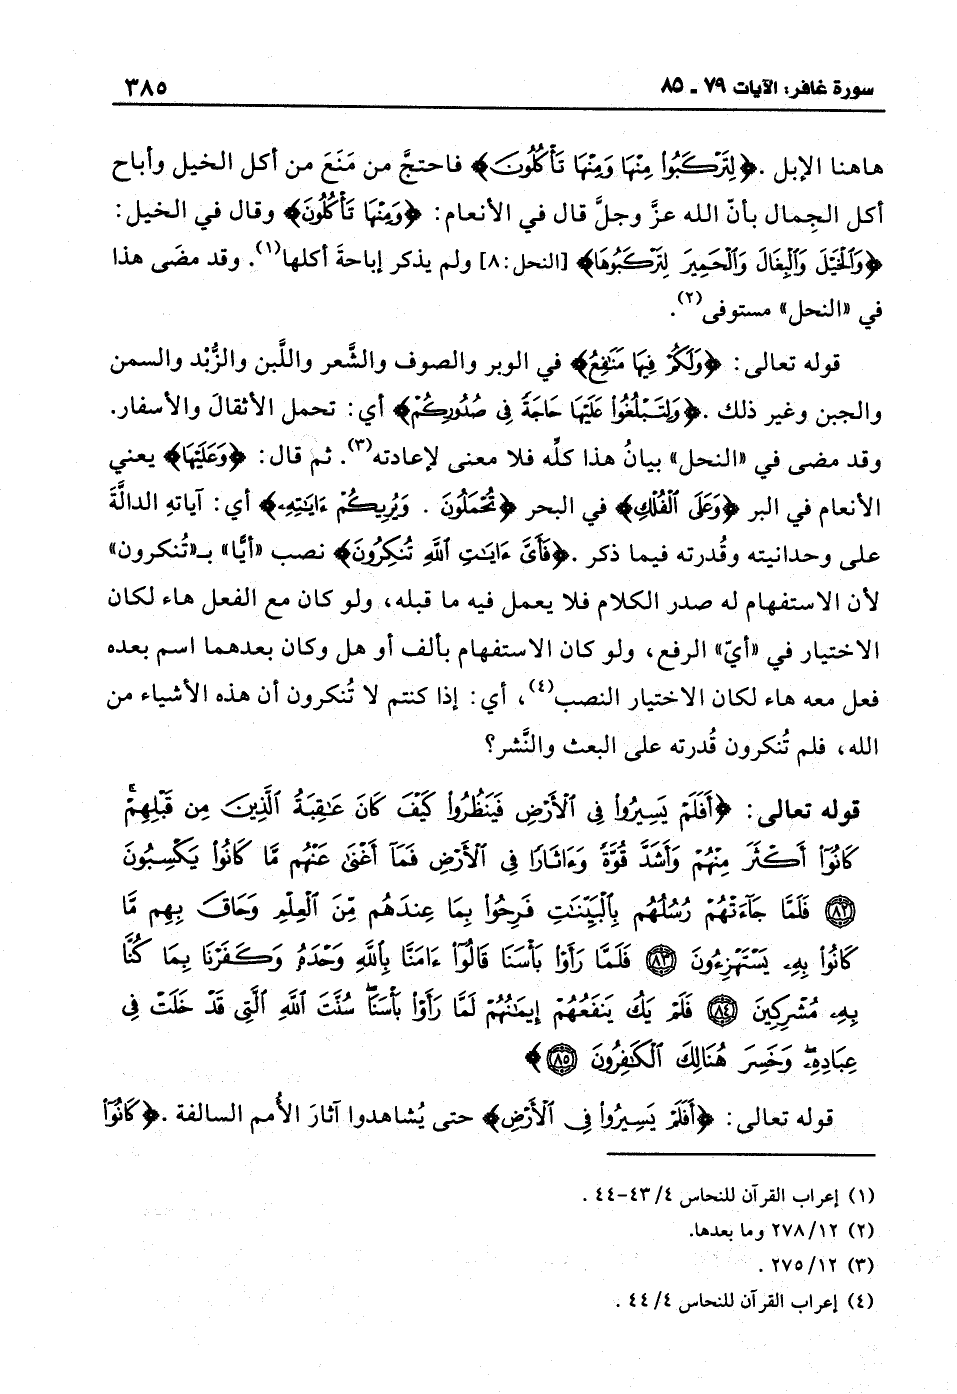 سورة غافر: الآيات ٧٩ ـ ٨٥
٣٨٥
هاهنا الإبل .﴿لِتَرْكَبُوا۟ مِنْهَا وَمِنْهَا تَأْكُلُونَ﴾ فاحتجَّ من مَنَعَ من أكل الخيل وأباح
أكل الجِمال بأنّ الله عزَّ وجلَّ قال في الأنعام: ﴿وَمِنْهَا تَأْكُلُونَ﴾ وقال في الخيل:
﴿وَٱلْخَيْلَ وَٱلْبِغَالَ وَٱلْحَمِيرَ لِتَرْكَبُوهَا﴾ [النحل:٨] ولم يذكر إباحةَ أكلها(١). وقد مضَى هذا
في «النحل» مستوفى(٢).
قوله تعالى: ﴿وَلَكُمْ فِيهَا مَنَٰفِعُ﴾ في الوبر والصوف والشَّعر واللَّبن والزُّبْد والسمن
والجبن وغير ذلك .﴿وَلِتَبْلُغُوا۟ عَلَيْهَا حَاجَةً فِى صُدُورِكُمْ﴾ أي: تحمل الأثقالَ والأسفار.
وقد مضى في «النحل» بيانُ هذا كلِّه فلا معنى لإعادته(٣). ثم قال: ﴿وَعَلَيْهَا﴾ يعني
الأنعام في البر ﴿وَعَلَى ٱلْفُلْكِ﴾ في البحر ﴿تُحْمَلُونَ . وَيُرِيكُمْ ءَايَٰتِهِۦ﴾ أي: آياتهِ الدالَّةَ
على وحدانيته وقُدرته فيما ذكر .﴿فَأَىَّ ءَايَٰتِ ٱللَّهِ تُنكِرُونَ﴾ نصب «أيًّا» بـ«تُنكرون»
لأن الاستفهام له صدر الكلام فلا يعمل فيه ما قبله، ولو كان مع الفعل هاء لكان
الاختيار في «أيّ» الرفع، ولو كان الاستفهام بألف أو هل وكان بعدهما اسم بعده
فعل معه هاء لكان الاختيار النصب(٤)، أي: إذا كنتم لا تُنكرون أن هذه الأشياء من
الله، فلم تُنكرون قُدرته على البعث والنَّشر؟
قوله تعالى: ﴿أَفَلَمْ يَسِيرُوا۟ فِى ٱلْأَرْضِ فَيَنظُرُوا۟ كَيْفَ كَانَ عَٰقِبَةُ ٱلَّذِينَ مِن قَبْلِهِمْ ۚ
كَانُوٓا۟ أَكْثَرَ مِنْهُمْ وَأَشَدَّ قُوَّةً وَءَاثَارًا فِى ٱلْأَرْضِ فَمَآ أَغْنَىٰ عَنْهُم مَّا كَانُوا۟ يَكْسِبُونَ
(٨٢) فَلَمَّا جَآءَتْهُمْ رُسُلُهُم بِٱلْبَيِّنَٰتِ فَرِحُوا۟ بِمَا عِندَهُم مِّنَ ٱلْعِلْمِ وَحَاقَ بِهِم مَّا
كَانُوا۟ بِهِۦ يَسْتَهْزِءُونَ (٨٣) فَلَمَّا رَأَوْا۟ بَأْسَنَا قَالُوٓا۟ ءَامَنَّا بِٱللَّهِ وَحْدَهُۥ وَكَفَرْنَا بِمَا كُنَّا
بِهِۦ مُشْرِكِينَ (٨٤) فَلَمْ يَكُ يَنفَعُهُمْ إِيمَٰنُهُمْ لَمَّا رَأَوْا۟ بَأْسَنَا ۖ سُنَّتَ ٱللَّهِ ٱلَّتِى قَدْ خَلَتْ فِى
عِبَادِهِۦ ۖ وَخَسِرَ هُنَالِكَ ٱلْكَٰفِرُونَ (٨٥)﴾
قوله تعالى: ﴿أَفَلَمْ يَسِيرُوا۟ فِى ٱلْأَرْضِ﴾ حتى يُشاهدوا آثارَ الأُمم السالفة .﴿كَانُوٓا۟
(١) إعراب القرآن للنحاس ٤/ ٤٣-٤٤ .
(٢) ١٢/ ٢٧٨ وما بعدها.
(٣) ١٢/ ٢٧٥ .
(٤) إعراب القرآن للنحاس ٤/ ٤٤ .